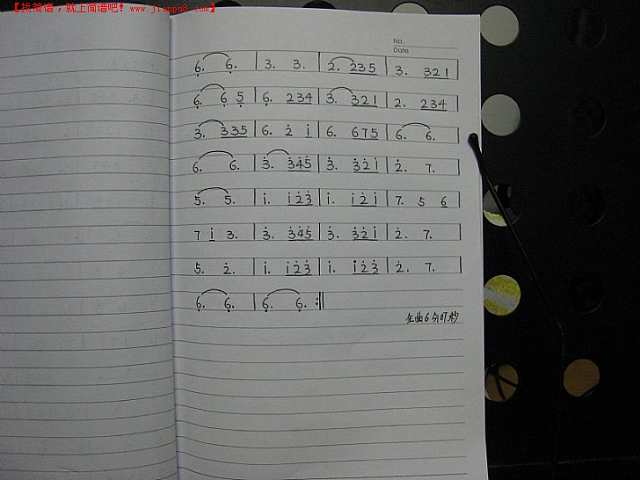 【找歌谱，就上简谱吧！www.jianpu8.com】
No.
Date
6. 6. | 3. 3. | 2. 235 | 3. 321 |
6. 6 5 | 6. 234 | 3. 321 | 2. 234 |
3. 335 | 6. 2 i | 6. 675 | 6. 6. |
6. 6. | 3. 345 | 3. 321 | 2. 7. |
5. 5. | i. i23 | i. i2i | 7. 5 6 |
7 i 3. | 3. 345 | 3. 321 | 2. 7. |
5. 2. | i. i23 | i. i23 | 2. 7. |
6. 6. | 6. 6. :||
全曲6分07秒